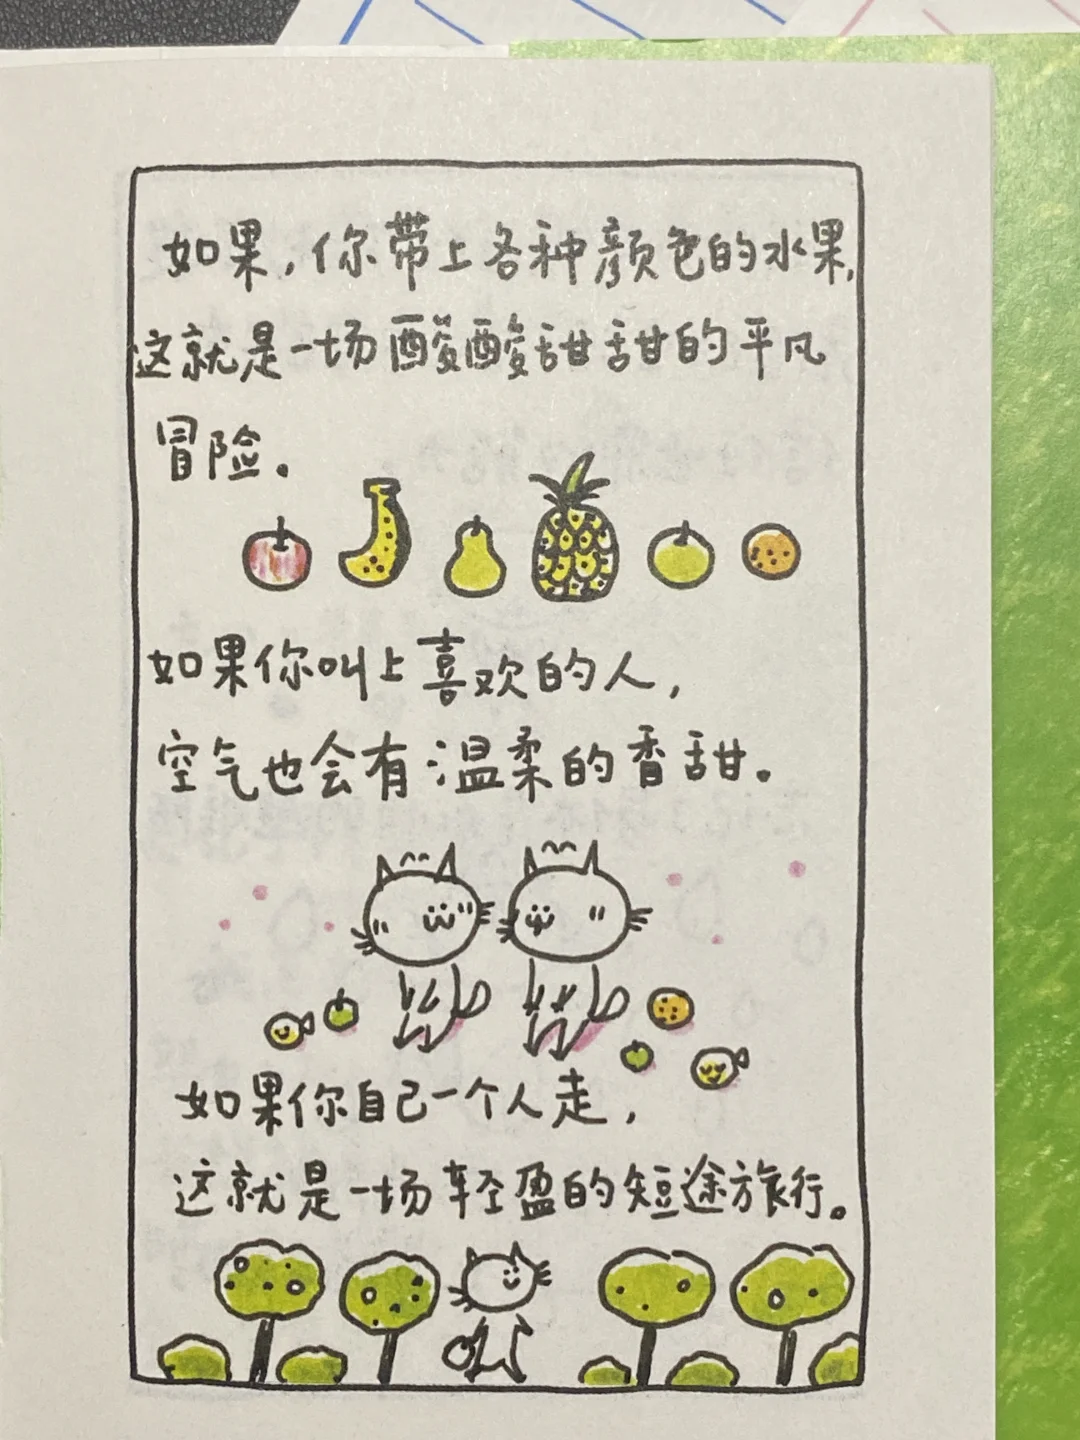 如果，你带上各种颜色的水果，
这就是一场酸酸甜甜的平凡
冒险。
如果你叫上喜欢的人，
空气也会有温柔的香甜。
如果你自己一个人走，
这就是一场轻盈的短途旅行。